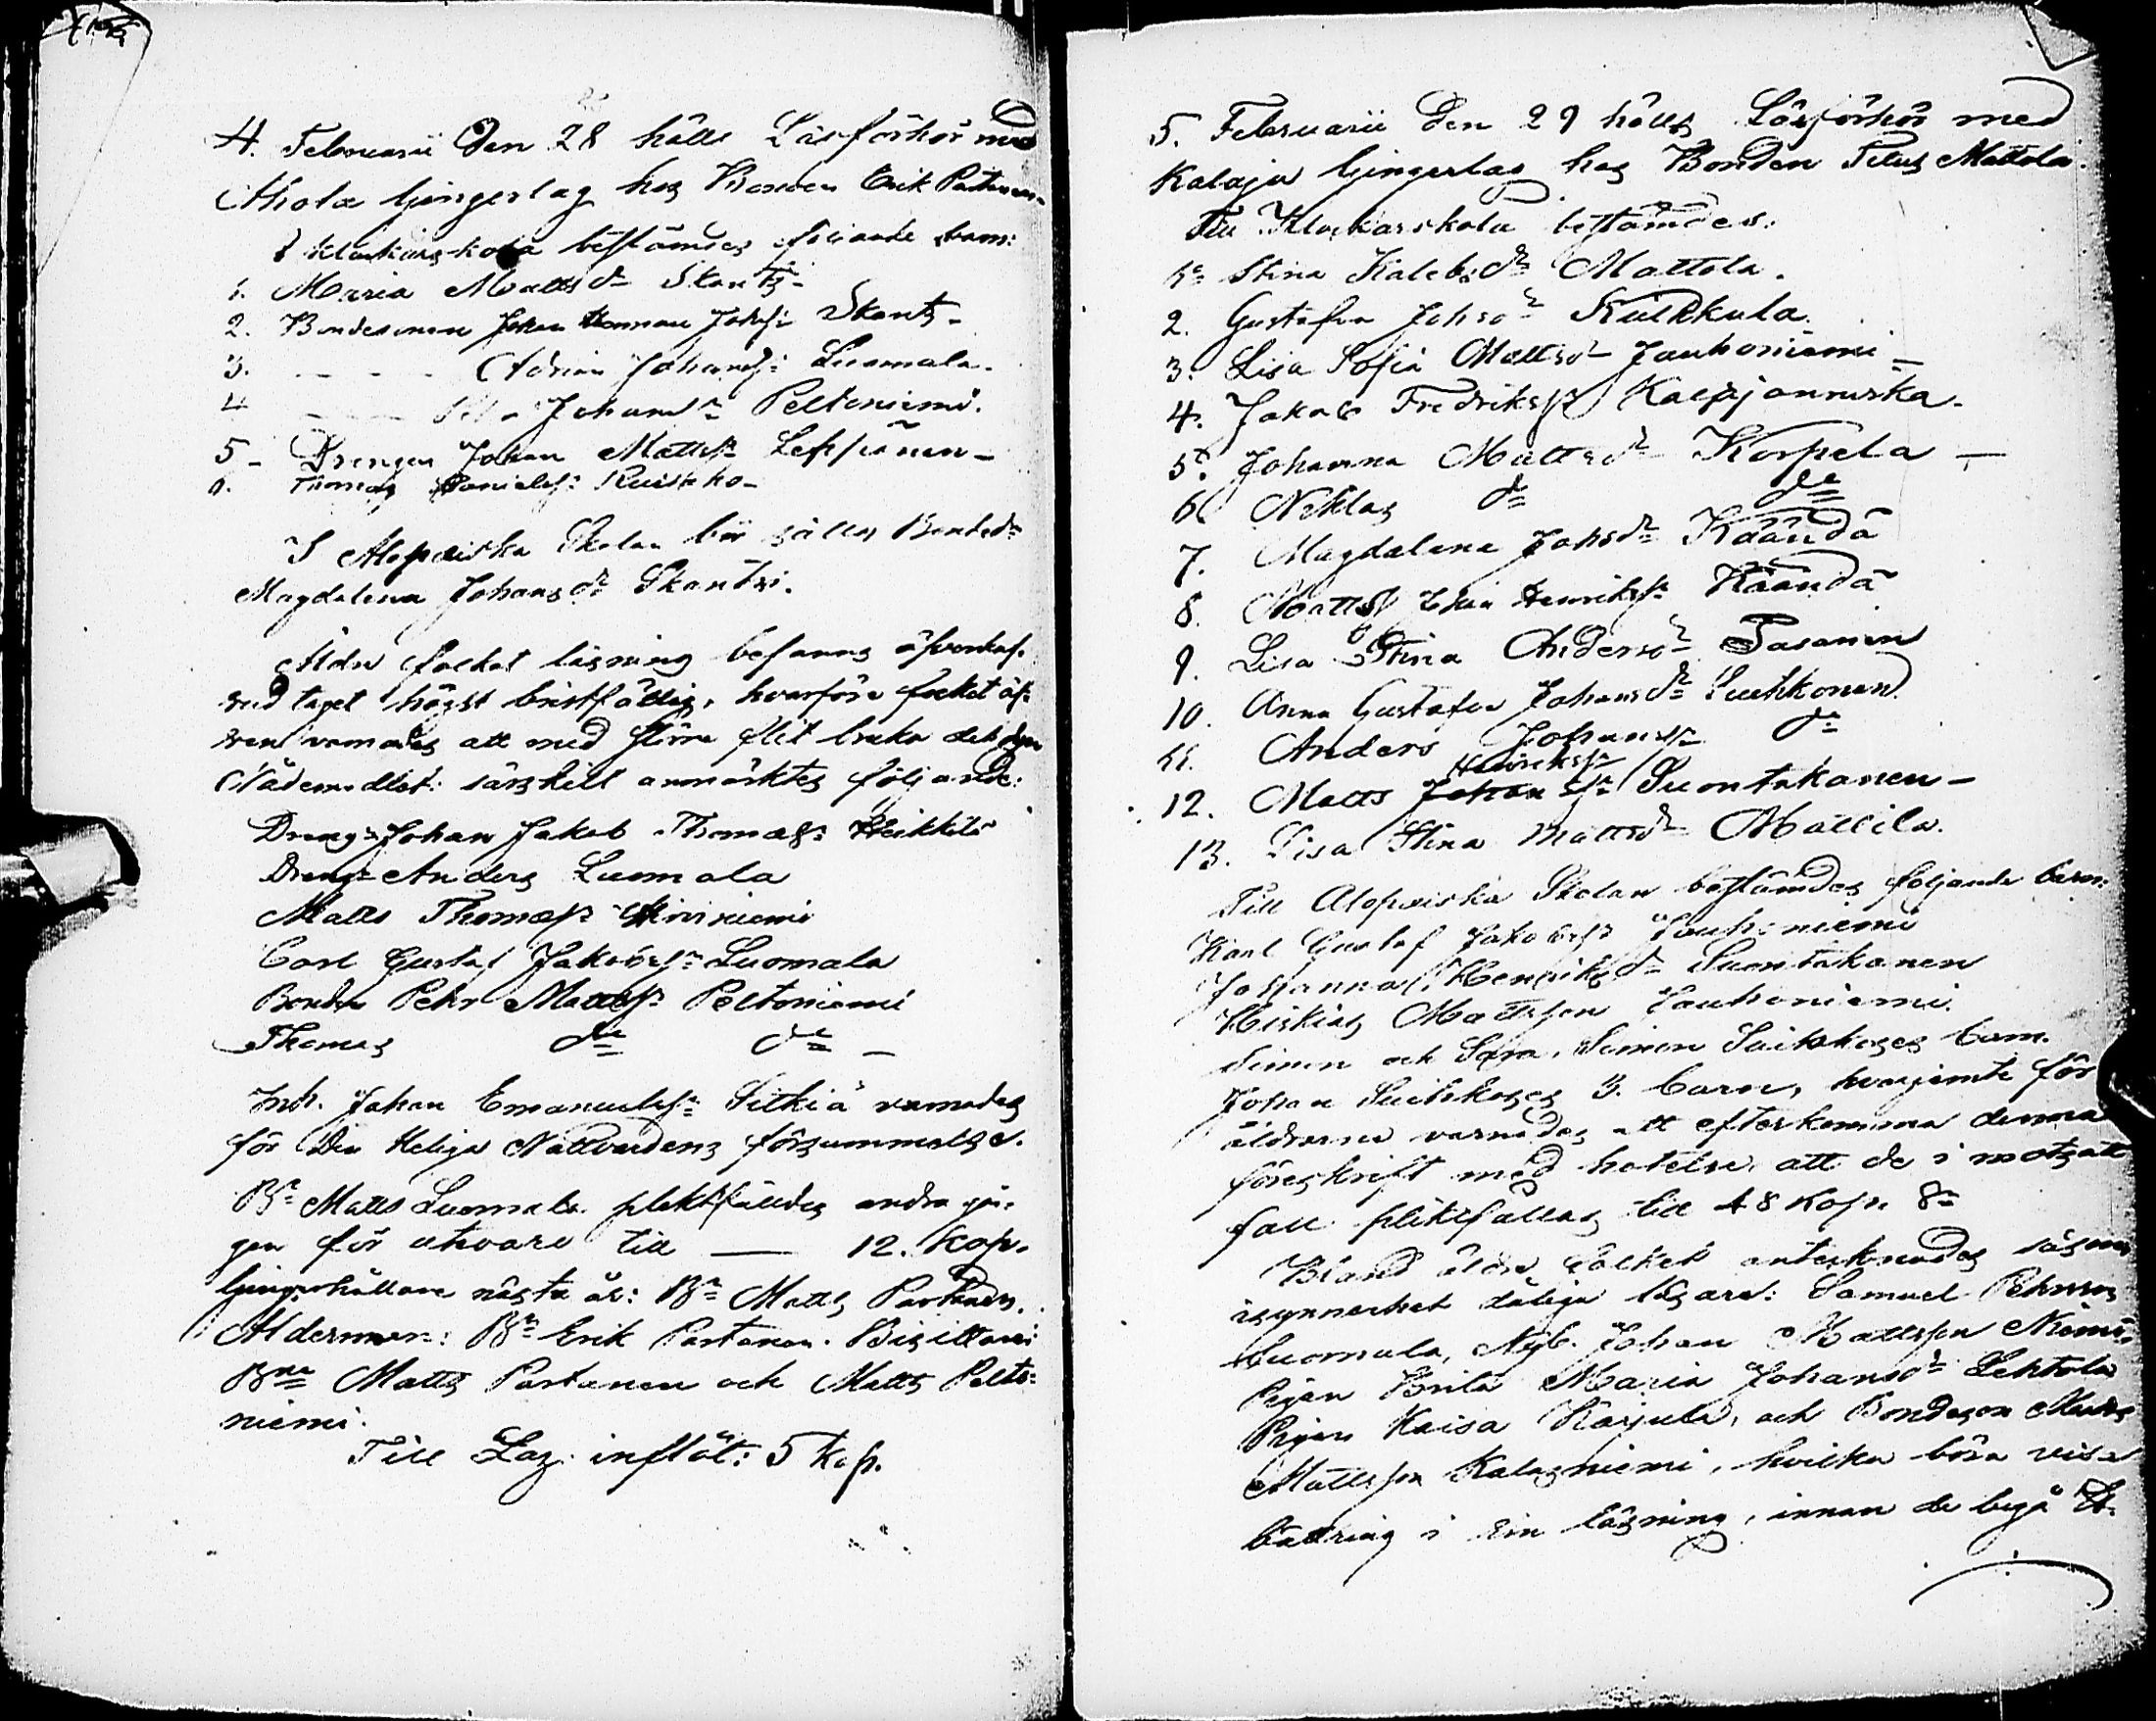 4. Februarii Den 28 hölls Läsförhör med
Ahola Gingerlag hos Bonden Erik Partanen
I Klockarskola bestämdes följande barn:
1. Maria Mattsdr Skants
2. Bondesonen Johan Herman Johss: Skants
3. - - - - Adrian Johanss: Luomala.
4 - - Johanssn Peltoniemi.
5 - Drengen Johan Mattssn Leppänen -
6. Thomas Danielss: Ruuskho -
I Alopeiska Skolan bör sättas Bondedr
Magdalena Johansdr Skantsi.
Äldre folket läsning befanns öfverhuf-
vud taget högst bristfällig, hvarföre folket äf-
ven varnades att med större flit bruka det
Nådemedlet: särskilt anmärktes följande:
Dreng: Johan Jakob Thomass: Heikkilä
Dreng: Anders Luomala
Matts Thomassn Kiviniemi
Carl Gustaf Jakobssn Luomala
Bonden Pehr Mattssn Peltoniemi
Thomas do do -
Inh. Johan Emanuelssn Sitkiä varnades
för Den Heliga Nattvardens försummelse.
Bn Matts Luomala pliktfälldes andra gån-
gen för utevaro till — 12. Kop.
Gingerhållare nästa år: Bn Matts Partanen.
Ålderman: Bn Erik Partanen. Bisittare:
Bne Matts Partanen och Matts Pelto-
niemi.
Till Laz. inflöt: 5 Kop.
5. Februarii Den 29 hölls Läsförhör med
Kalaja Gingerlag hos Bonden Petus Mattola.
Till Klockarskola bestämdes:
1. Stina Kalebsdr Mattola.
2. Gustafva Johsdr Kuikkula.
3. Lisa Sofia Mattsdr Jauhoniemi -
4. Jakob Fredrikssn Kalajanruska.
5. Johanna Mattsdr Korpela —
6 Niklas do do
7. Magdalena Johsdr Käändä
8. Matts Johan Henrikssn Käändä
9. Lisa Stina Andersdr Pasanen
10. Anna Gustafva Johansdr Luukkonen
11. Anders Johanssn do
12. Matts Henrikssn Suontakanen -
13. Lisa Stina Mattsdr Mattila.
Till Alopeiska Skolan bestämdes följande barn:
Karl Gustaf Jakobssn Jauhoniemi
Johanna Henriksdr Suontakanen
Hiskias Mattsson Jauhoniemi.
Simon och Sara, Simon Suitskoses barn.
Johan Suitskoses 3. barn, hvarjemte för
äldrarne varnades att efterkomma denna
föreskrift med hotelse, att de i motsatt
fall pliktfällas till 48 Kop. Sr
Bland äldre folket antecknades såsom
isynnerhet dåliga läsare: Samuel Pehrsson
Luomala, Nyb. Johan Mattsson Niemi,
Pigan Brita Maria Johansdr Lehtola
Pigan Kaisa Karjula, och Bondeson Matts
Mattsson Kalasniemi, hvilka böra visa
bättring i sin läsning, innan de begå H.